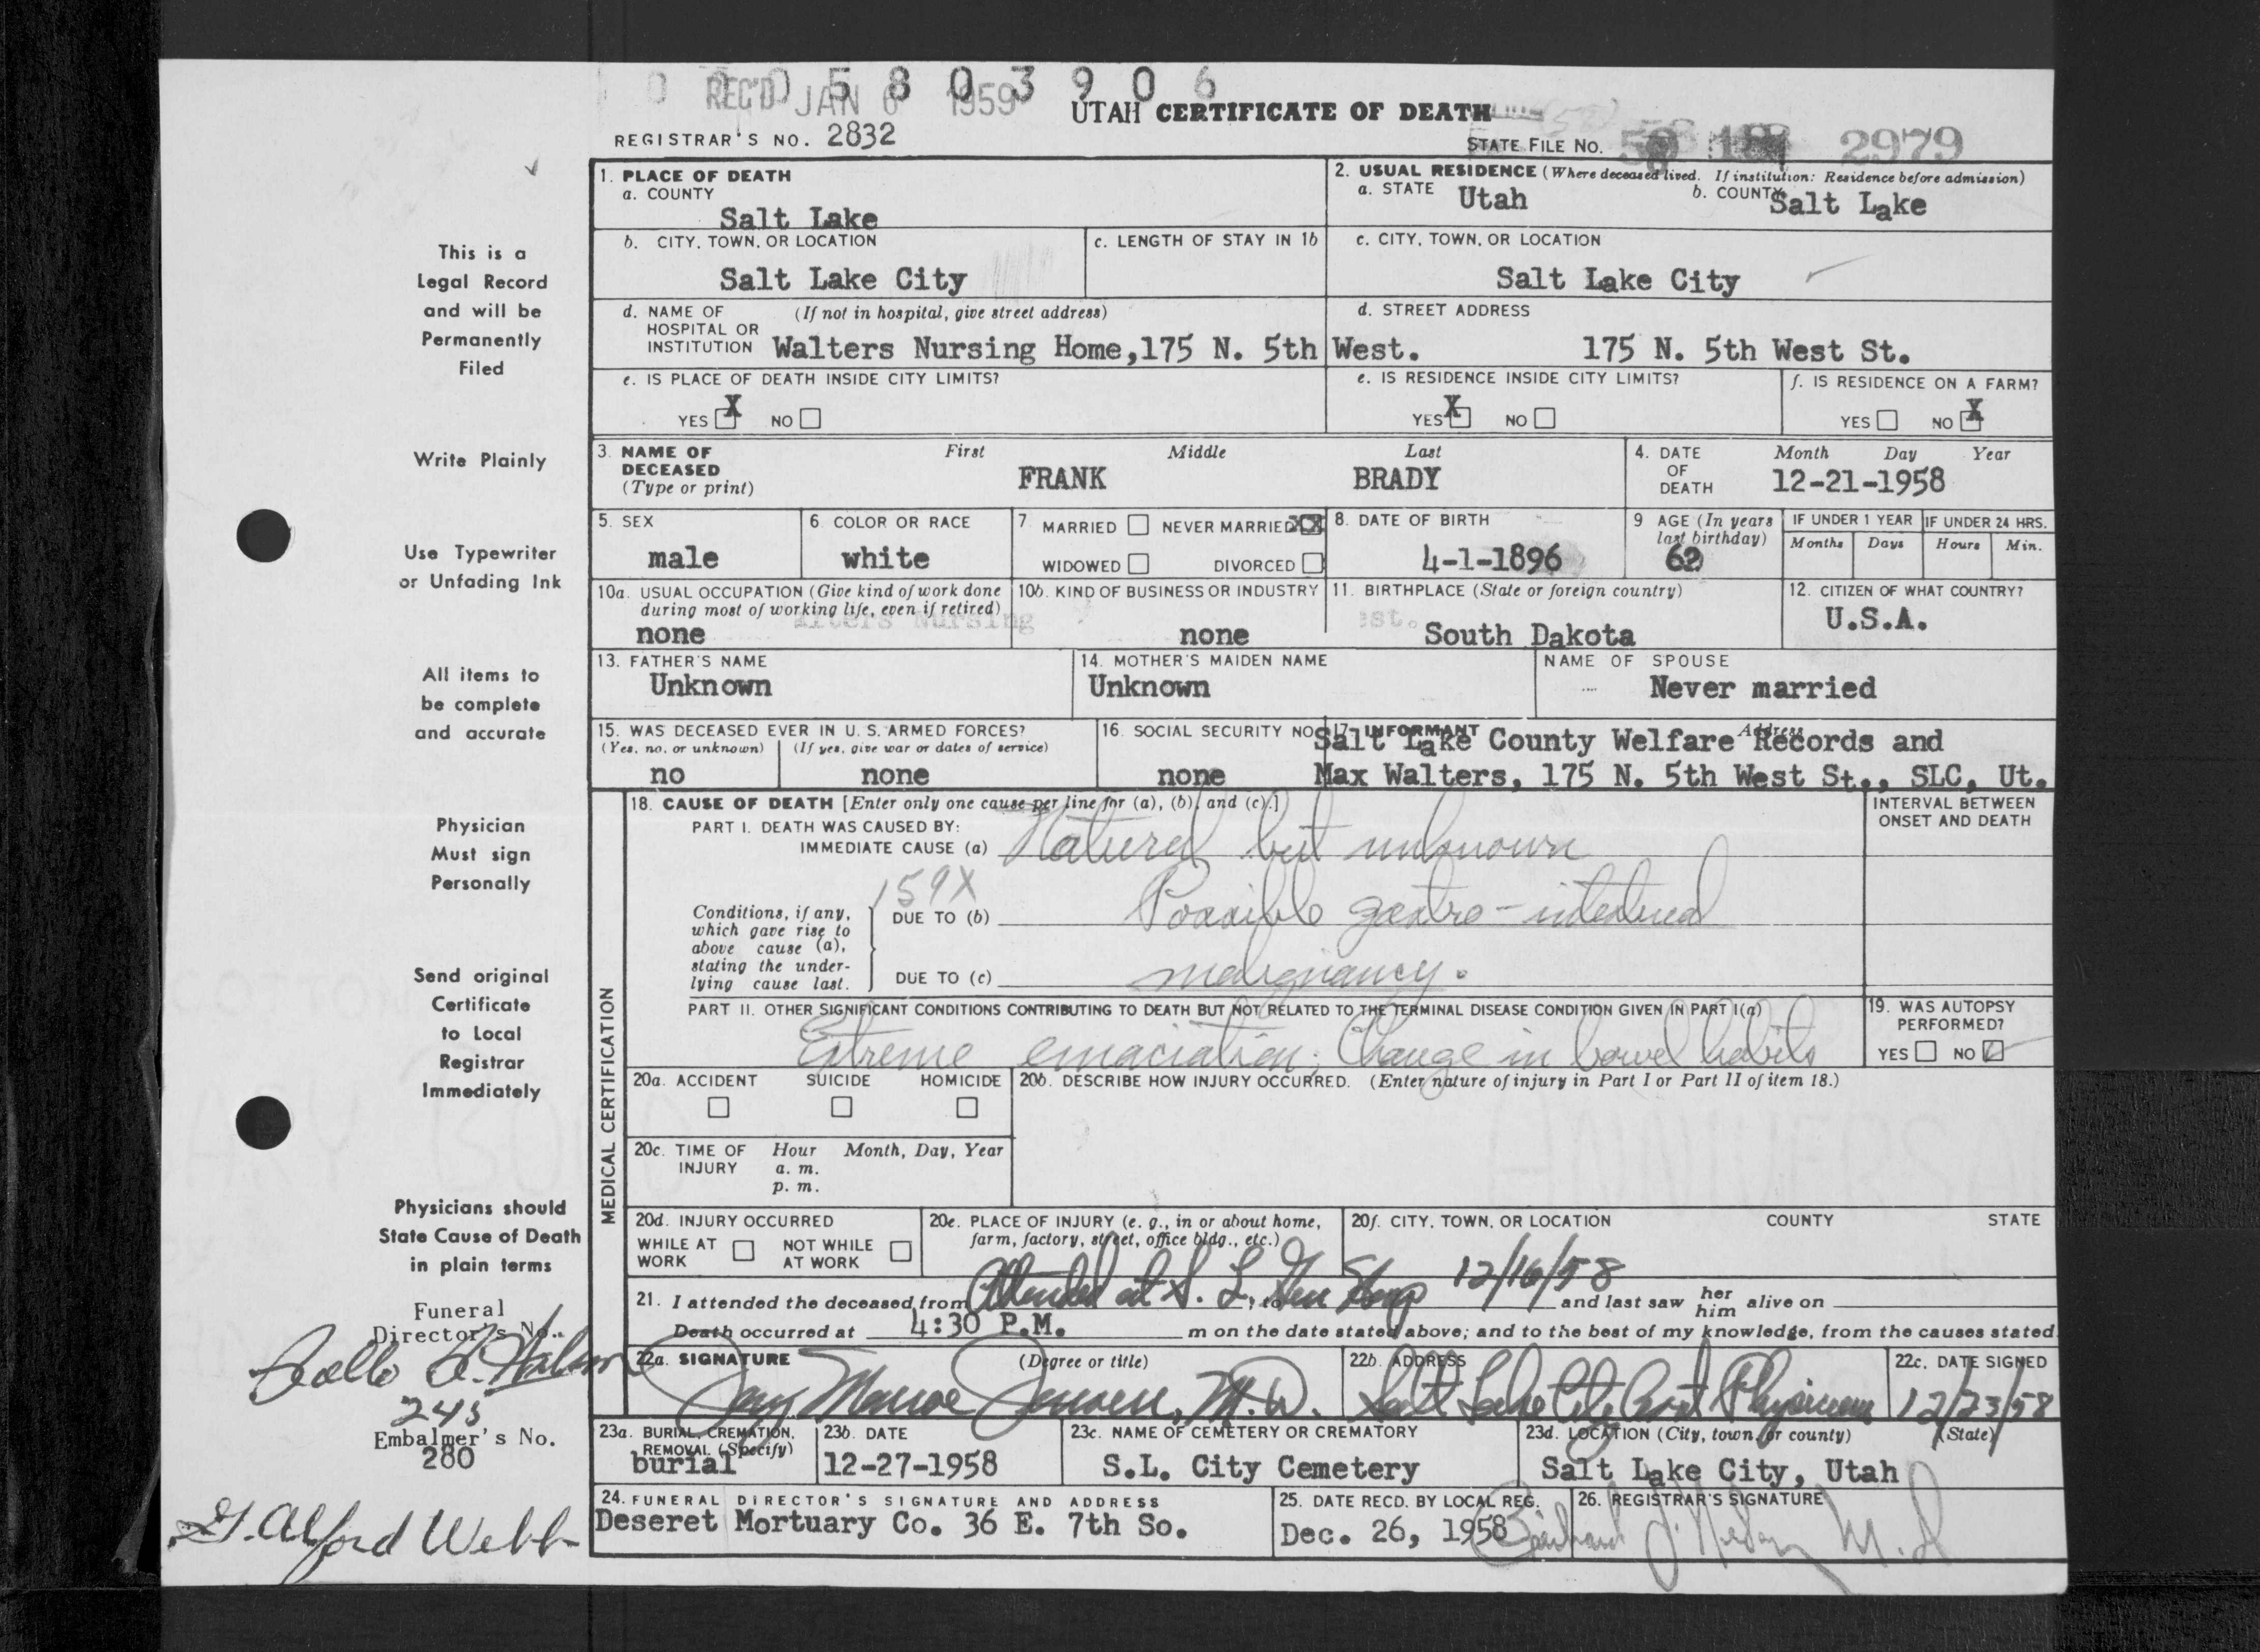 0 0 0 5 8 0 3 9 0 6
REC'D JAN 6 1959
UTAH CERTIFICATE OF DEATH
REGISTRAR'S NO. 2832
STATE FILE NO. 58 18 2979
1. PLACE OF DEATH
a. COUNTY
Salt Lake
2. USUAL RESIDENCE (Where deceased lived. If institution: Residence before admission)
a. STATE Utah b. COUNTY Salt Lake
b. CITY, TOWN, OR LOCATION
Salt Lake City
c. LENGTH OF STAY IN 1b
c. CITY, TOWN, OR LOCATION
Salt Lake City
d. NAME OF (If not in hospital, give street address)
HOSPITAL OR
INSTITUTION Walters Nursing Home, 175 N. 5th West.
d. STREET ADDRESS
175 N. 5th West St.
e. IS PLACE OF DEATH INSIDE CITY LIMITS?
YES X NO
e. IS RESIDENCE INSIDE CITY LIMITS?
YES X NO
f. IS RESIDENCE ON A FARM?
YES NO X
3. NAME OF DECEASED (Type or print)
First Middle Last
FRANK BRADY
4. DATE OF DEATH
Month Day Year
12-21-1958
5. SEX
male
6. COLOR OR RACE
white
7. MARRIED NEVER MARRIED XX
WIDOWED DIVORCED
8. DATE OF BIRTH
4-1-1896
9 AGE (In years last birthday)
62
IF UNDER 1 YEAR
Months Days
IF UNDER 24 HRS.
Hours Min.
10a. USUAL OCCUPATION (Give kind of work done
during most of working life, even if retired)
none
10b. KIND OF BUSINESS OR INDUSTRY
none
11. BIRTHPLACE (State or foreign country)
South Dakota
12. CITIZEN OF WHAT COUNTRY?
U.S.A.
13. FATHER'S NAME
Unknown
14. MOTHER'S MAIDEN NAME
Unknown
NAME OF SPOUSE
Never married
15. WAS DECEASED EVER IN U. S. ARMED FORCES?
(Yes, no, or unknown) (If yes, give war or dates of service)
no none
16. SOCIAL SECURITY NO.
none
17. INFORMANT Address
Salt Lake County Welfare Records and
Max Walters, 175 N. 5th West St., SLC, Ut.
18. CAUSE OF DEATH [Enter only one cause per line for (a), (b), and (c).]
INTERVAL BETWEEN
ONSET AND DEATH
PART I. DEATH WAS CAUSED BY:
IMMEDIATE CAUSE (a) Natural but unknown
159X
Conditions, if any,
which gave rise to
above cause (a),
stating the under-
lying cause last.
DUE TO (b) Possible gastro-intestinal
DUE TO (c) malignancy.
PART II. OTHER SIGNIFICANT CONDITIONS CONTRIBUTING TO DEATH BUT NOT RELATED TO THE TERMINAL DISEASE CONDITION GIVEN IN PART I(a)
Extreme emaciation; Change in bowel habits
19. WAS AUTOPSY
PERFORMED?
YES NO
MEDICAL CERTIFICATION
20a. ACCIDENT SUICIDE HOMICIDE
20b. DESCRIBE HOW INJURY OCCURRED. (Enter nature of injury in Part I or Part II of item 18.)
20c. TIME OF INJURY
Hour Month, Day, Year
a. m.
p. m.
20d. INJURY OCCURRED
WHILE AT WORK NOT WHILE AT WORK
20e. PLACE OF INJURY (e. g., in or about home,
farm, factory, street, office bldg., etc.)
20f. CITY, TOWN, OR LOCATION COUNTY STATE
21. I attended the deceased from Attended at S. L. Gen Hosp 12/16/58 and last saw her him alive on
Death occurred at 4:30 P.M. m on the date stated above; and to the best of my knowledge, from the causes stated.
22a. SIGNATURE (Degree or title)
Jay Monroe Jensen, M.D.
22b. ADDRESS
Salt Lake City Physician
22c. DATE SIGNED
12/23/58
23a. BURIAL, CREMATION,
REMOVAL (Specify)
burial
23b. DATE
12-27-1958
23c. NAME OF CEMETERY OR CREMATORY
S.L. City Cemetery
23d. LOCATION (City, town, or county) (State)
Salt Lake City, Utah
24. FUNERAL DIRECTOR'S SIGNATURE AND ADDRESS
Deseret Mortuary Co. 36 E. 7th So.
25. DATE RECD. BY LOCAL REG.
Dec. 26, 1958
26. REGISTRAR'S SIGNATURE
M.D
This is a
Legal Record
and will be
Permanently
Filed
Write Plainly
Use Typewriter
or Unfading Ink
All items to
be complete
and accurate
Physician
Must sign
Personally
Send original
Certificate
to Local
Registrar
Immediately
Physicians should
State Cause of Death
in plain terms
Funeral
Director's No.
245
Embalmer's No.
280
Alford Webb